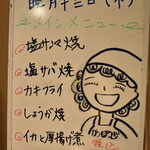 臘月十三日(木)
メインメニュー
塩サンマ焼
塩サバ焼
カキフライ
しょうが焼
イカと厚揚げ煮